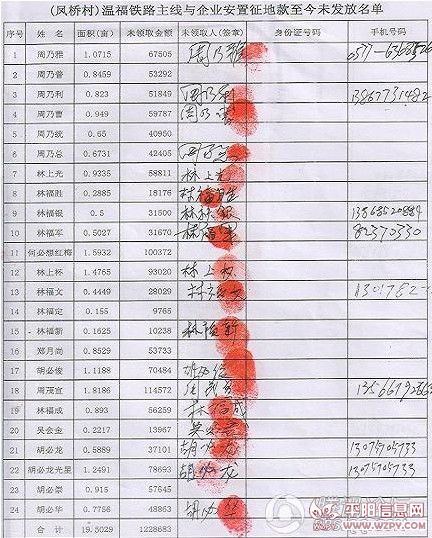 (凤桥村)温福铁路主线与企业安置征地款至今未发放名单
序号 姓名 面积(亩) 未领取金额 未领取人(签章) 身份证号码 手机号码
1 周乃雅 1.0715 67505 周乃雅
2 周乃普 0.8459 53292
3 周乃利 0.823 51849 周乃利 13867731482
4 周乃曹 0.949 59787
5 周乃统 0.65 40950
6 周乃总 0.6731 42405
7 林上光 0.9335 58811 林上光
8 林福胜 0.2885 18176 林福胜
9 林福银 0.5 31500 林福银 13868520884
10 林福军 0.5027 31670 林福军 82370330
11 何必想红梅 1.5932 100372
12 林上杯 1.4765 93020
13 林福文 0.4449 28029 林福文
14 林福定 0.155 9765
15 林福新 0.1625 10238 林福新
16 郑月尚 0.8529 53733
17 胡必俊 1.1188 70484 胡必俊
18 周茂宣 1.8186 114572
19 林福成 0.893 56259 林福成
20 吴会金 0.2217 13967
21 胡必龙 0.5889 37101 胡必龙 13075705733
22 胡必龙光星 1.2491 78693 胡必龙 13075705733
23 胡必崇 0.915 57645
24 胡必华 0.7756 48863 胡必华
合计 19.5029 1228683
平阳信息网
www.WZPY.com